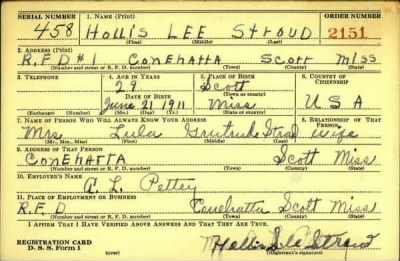 SERIAL NUMBER 1. NAME (Print) ORDER NUMBER
458 HOLLIS LEE STROUD 2151
(First) (Middle) (Last)
2. ADDRESS (Print)
R.F.D #1 CONEHATTA SCOTT MISS
(Number and street or R. F. D. number) (Town) (County) (State)
3. TELEPHONE 4. AGE IN YEARS 5. PLACE OF BIRTH 6. COUNTRY OF CITIZENSHIP
29 Scott
DATE OF BIRTH (Town or county)
June 21 1911 Miss USA
(Exchange) (Number) (Mo.) (Day) (Yr.) (State or country)
7. NAME OF PERSON WHO WILL ALWAYS KNOW YOUR ADDRESS 8. RELATIONSHIP OF THAT PERSON
Mrs Lula Gertrude wife
(Mr., Mrs., Miss) (First) (Middle) (Last)
9. ADDRESS OF THAT PERSON
CONEHATTA Scott Miss
(Number and street or R. F. D. number) (Town) (County) (State)
10. EMPLOYER'S NAME
L. Pettey
11. PLACE OF EMPLOYMENT OR BUSINESS
R.F.D Conehatta Scott Miss
(Number and street or R. F. D. number) (Town) (County) (State)
I AFFIRM THAT I HAVE VERIFIED ABOVE ANSWERS AND THAT THEY ARE TRUE.
REGISTRATION CARD
D. S. S. Form 1 Hollis Lee Stroud
(Registrant's signature)